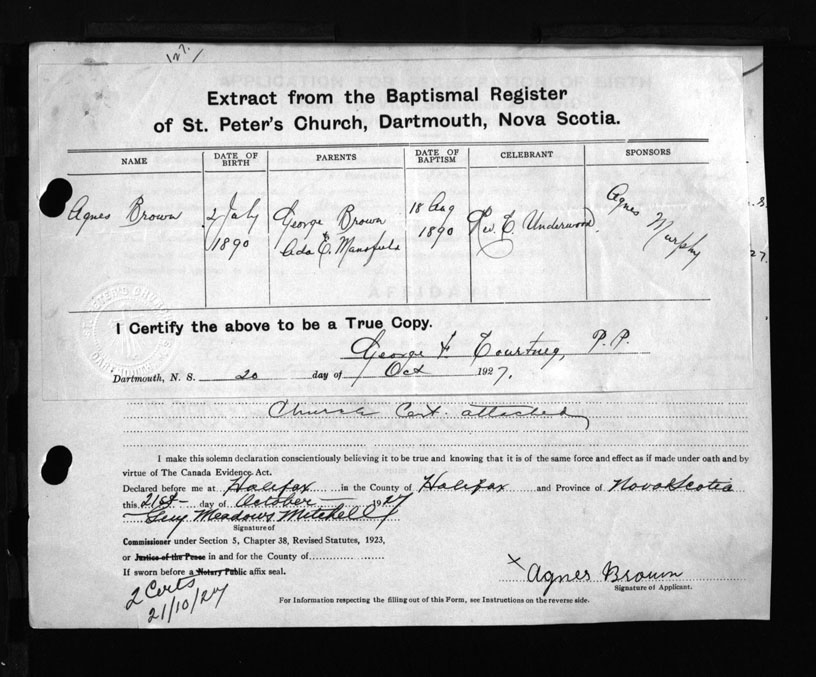 127
Extract from the Baptismal Register
of St. Peter's Church, Dartmouth, Nova Scotia.
NAME DATE OF BIRTH PARENTS DATE OF BAPTISM CELEBRANT SPONSORS
Agnes Brown 2 July 1890 George Brown & Ada E. Mansfield 18 Aug 1890 Rev. E. Underwood. Agnes Murphy
S.
27.
I Certify the above to be a True Copy.
George F. Courtney, P. P.
Dartmouth, N. S. 20 day of Oct 1927.
Church Cert. attached
I make this solemn declaration conscientiously believing it to be true and knowing that it is of the same force and effect as if made under oath and by
virtue of The Canada Evidence Act.
Declared before me at Halifax in the County of Halifax and Province of Nova Scotia
this 21st day of October 1927
Guy Meadows Mitchell
Signature of
Commissioner under Section 5, Chapter 38, Revised Statutes, 1923,
or Justice of the Peace in and for the County of
If sworn before a Notary Public affix seal.
x Agnes Brown
Signature of Applicant.
2 Certs
21/10/27
For Information respecting the filling out of this Form, see Instructions on the reverse side.